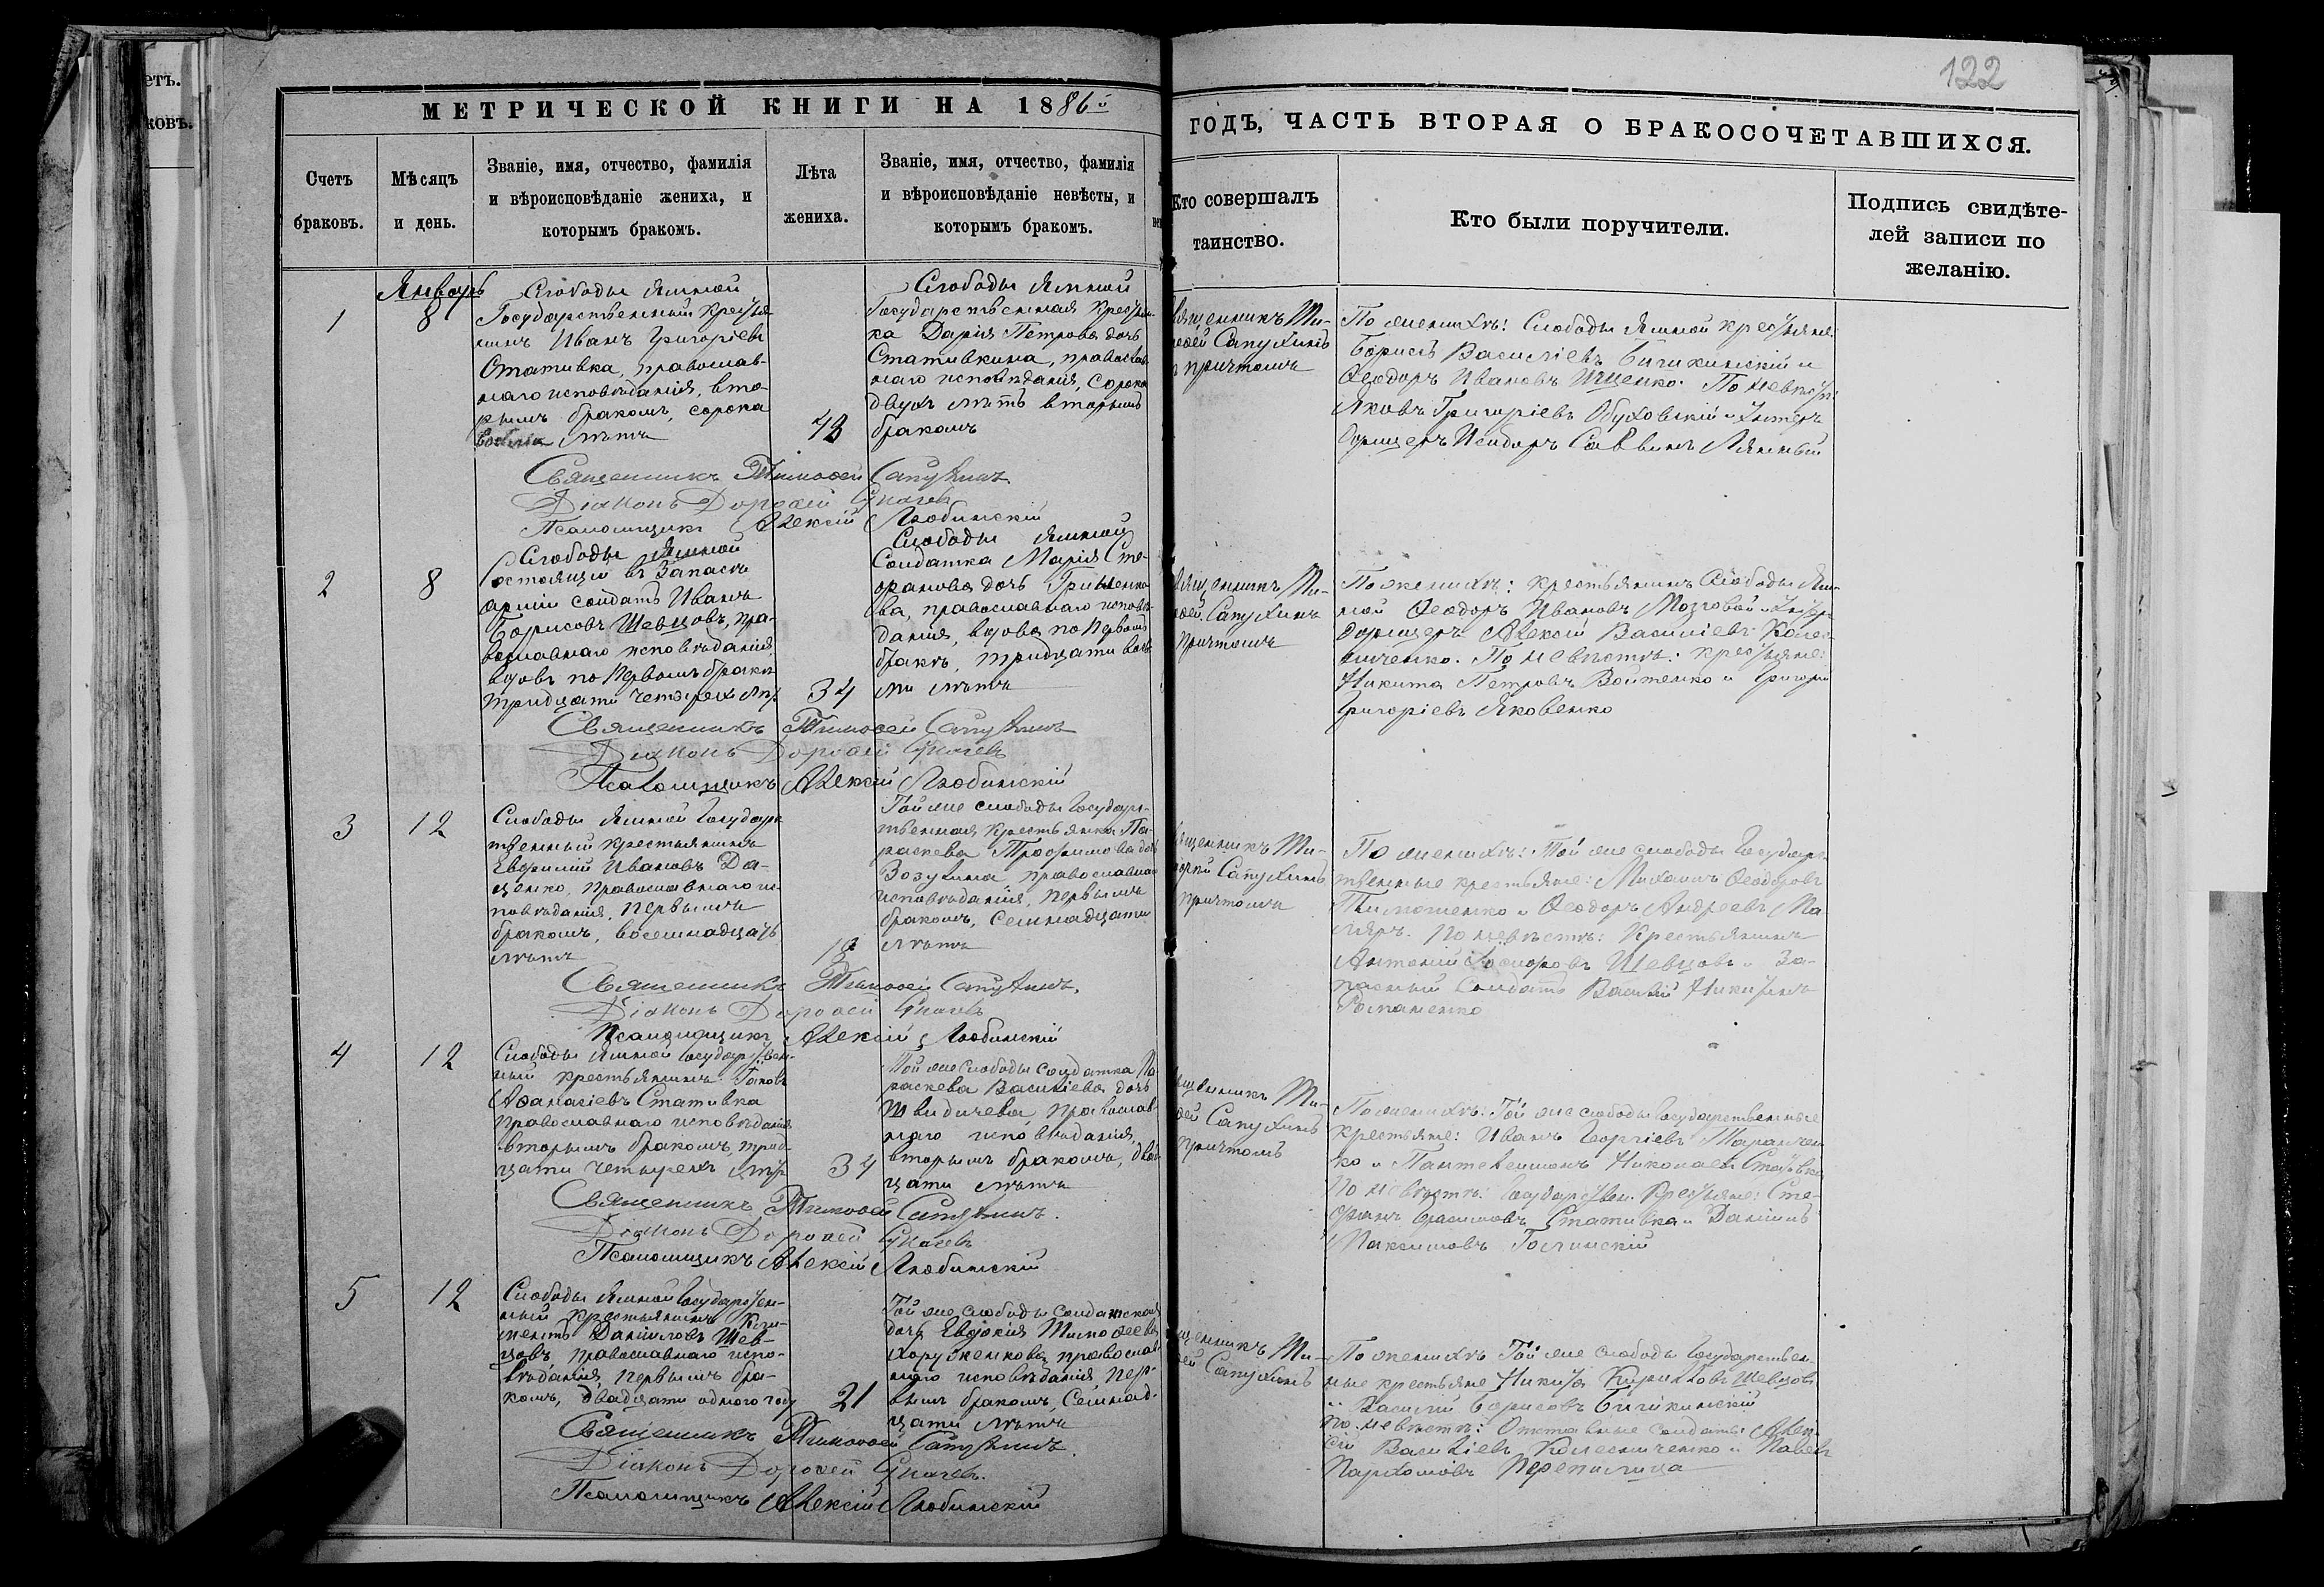 етъ.
ковъ.
122
МЕТРИЧЕСКОЙ КНИГИ НА 1886й
ГОДЪ, ЧАСТЬ ВТОРАЯ О БРАКОСОЧЕТАВШИХСЯ.
Счетъ
браковъ.
Мѣсяцъ
и день.
Званіе, имя, отчество, фамилія
и вѣроисповѣданіе жениха, и
которымъ бракомъ.
Лѣта
жениха.
Званіе, имя, отчество, фамилія
и вѣроисповѣданіе невѣсты, и
которымъ бракомъ.
Кто совершалъ
таинство.
Кто были поручители.
Подпись свидѣте-
лей записи по
желанію.
Январь
1
8
Слободы Ямной
Государственный Крестья
нинъ Иванъ Григоріевъ
Стативка, православ-
наго исповѣданія, вто-
рымъ бракомъ, сорока
лѣтъ
Слободы Ямной
Государственная Крестьян-
ка Дарія Петрова дочь
Стативкина, православ
наго исповѣданія, сорока
двухъ лѣтъ вторымъ
бракомъ
Священникъ Ти-
моѳей Сапухинъ
причтомъ
По женихѣ: Слободы Ямной крестьяне:
Борисъ Василіевъ и
Ѳеодоръ Ивановъ Ищенко. По невѣстѣ:
Яковъ Григоріевъ Обуховскій и Унтеръ
Офицеръ Исидоръ Саввинъ
Священникъ Тимоѳей Сапухинъ
Діаконъ Дороѳей
Псаломщикъ Алексій Любинскій
2
8
Слободы Ямной
состоящій въ Запасѣ
арміи солдатъ Иванъ
Борисовъ Шевцовъ, пра-
вославнаго исповѣданія,
вдовъ по первомъ бракѣ
тридцати четырехъ лѣт
34
Слободы Ямной
Солдатка Марія Сте-
фанова дочь Гриненко
ва, православнаго исповѣ-
данія, вдова по первомъ
бракѣ, тридцати вось
ми лѣтъ
Священникъ Ти-
моѳей Сапухинъ
причтомъ
По женихѣ: Крестьянинъ Слободы Ям-
ной Ѳеодоръ Ивановъ Мозговой и Унтеръ
Офицеръ Алексій Василіевъ Колес-
ниченко. По невѣстѣ: крестьяне:
Никита Петровъ Войтенко и Григорій
Григоріевъ Яковенко
Священникъ Тимоѳей Сапухинъ
Діаконъ Дороѳей
Псаломщикъ Алексій Любинскій
3
12
Слободы Ямной Государс
твенный крестьянинъ
Евфимій Ивановъ Да-
ценко, православнаго ис-
повѣданія, первымъ
бракомъ, восемнадцать
лѣтъ
18
Той же слободы Государс-
твенная крестьянка Па-
раскева Трофимова дочь
Зозулина православнаго
исповѣданія, первымъ
бракомъ, семнадцати
лѣтъ
Священникъ Ти-
моѳей Сапухинъ
причтомъ
По женихѣ: Той же слободы Государс
твенные крестьяне: Михаилъ Ѳеодоровъ
Тимошенко и Ѳеодоръ Андреевъ Ма-
ляръ. По невѣстѣ: Крестьянинъ
Антоній Шевцовъ и За-
пасный Солдатъ Василій Никитинъ
Романенко
Священникъ Тимоѳей Сапухинъ.
Діаконъ Дороѳей
Псаломщикъ Алексій Любинскій
4
12
Слободы Ямной Государствен-
ный крестьянинъ Іаковъ
Аѳанасіевъ Стативка
православнаго исповѣданія
вторымъ бракомъ, трид-
цати четырехъ лѣт
34
Той же слободы солдатка Па-
раскева Василіева дочь
православ-
наго исповѣданія,
вторымъ бракомъ, двад-
цати лѣтъ
Священникъ Ти-
моѳей Сапухинъ
причтомъ
По женихѣ: Той же слободы Государственные
крестьяне: Иванъ Георгіевъ Таранчен
ко и Пантелеимонъ Николаевъ Стативка
По невѣстѣ: Государствен. Крестьяне: Сте-
фанъ Стативка и Даніилъ
Максимовъ
Священникъ Тимоѳей Сапухинъ.
Діаконъ Дороѳей
Псаломщикъ Алексій Любинскій
5
12
Слободы Ямной Государствен-
ный Крестьянинъ Кли-
ментъ Даніиловъ Шев-
цовъ православнаго испо-
вѣданія, первымъ бра-
комъ, двадцати одного году
21
Той же слободы солдатская
дочь Евдокія Тимоѳеева
Хоруженкова, православ-
наго исповѣданія, пер-
вымъ бракомъ, семнад-
цати лѣтъ
Священникъ Ти-
моѳей Сапухинъ
По женихѣ Той же слободы Государствен-
ные крестьяне Никита Кирилловъ Шевцовъ
и Василій Борисовъ
По невѣстѣ: Отставные солдаты: Алек-
сій Василіевъ Колесниченко и Павелъ
Пархомовъ Перепилица
Священникъ Тимоѳей Сапухинъ.
Діаконъ Дороѳей
Псаломщикъ Алексій Любинскій